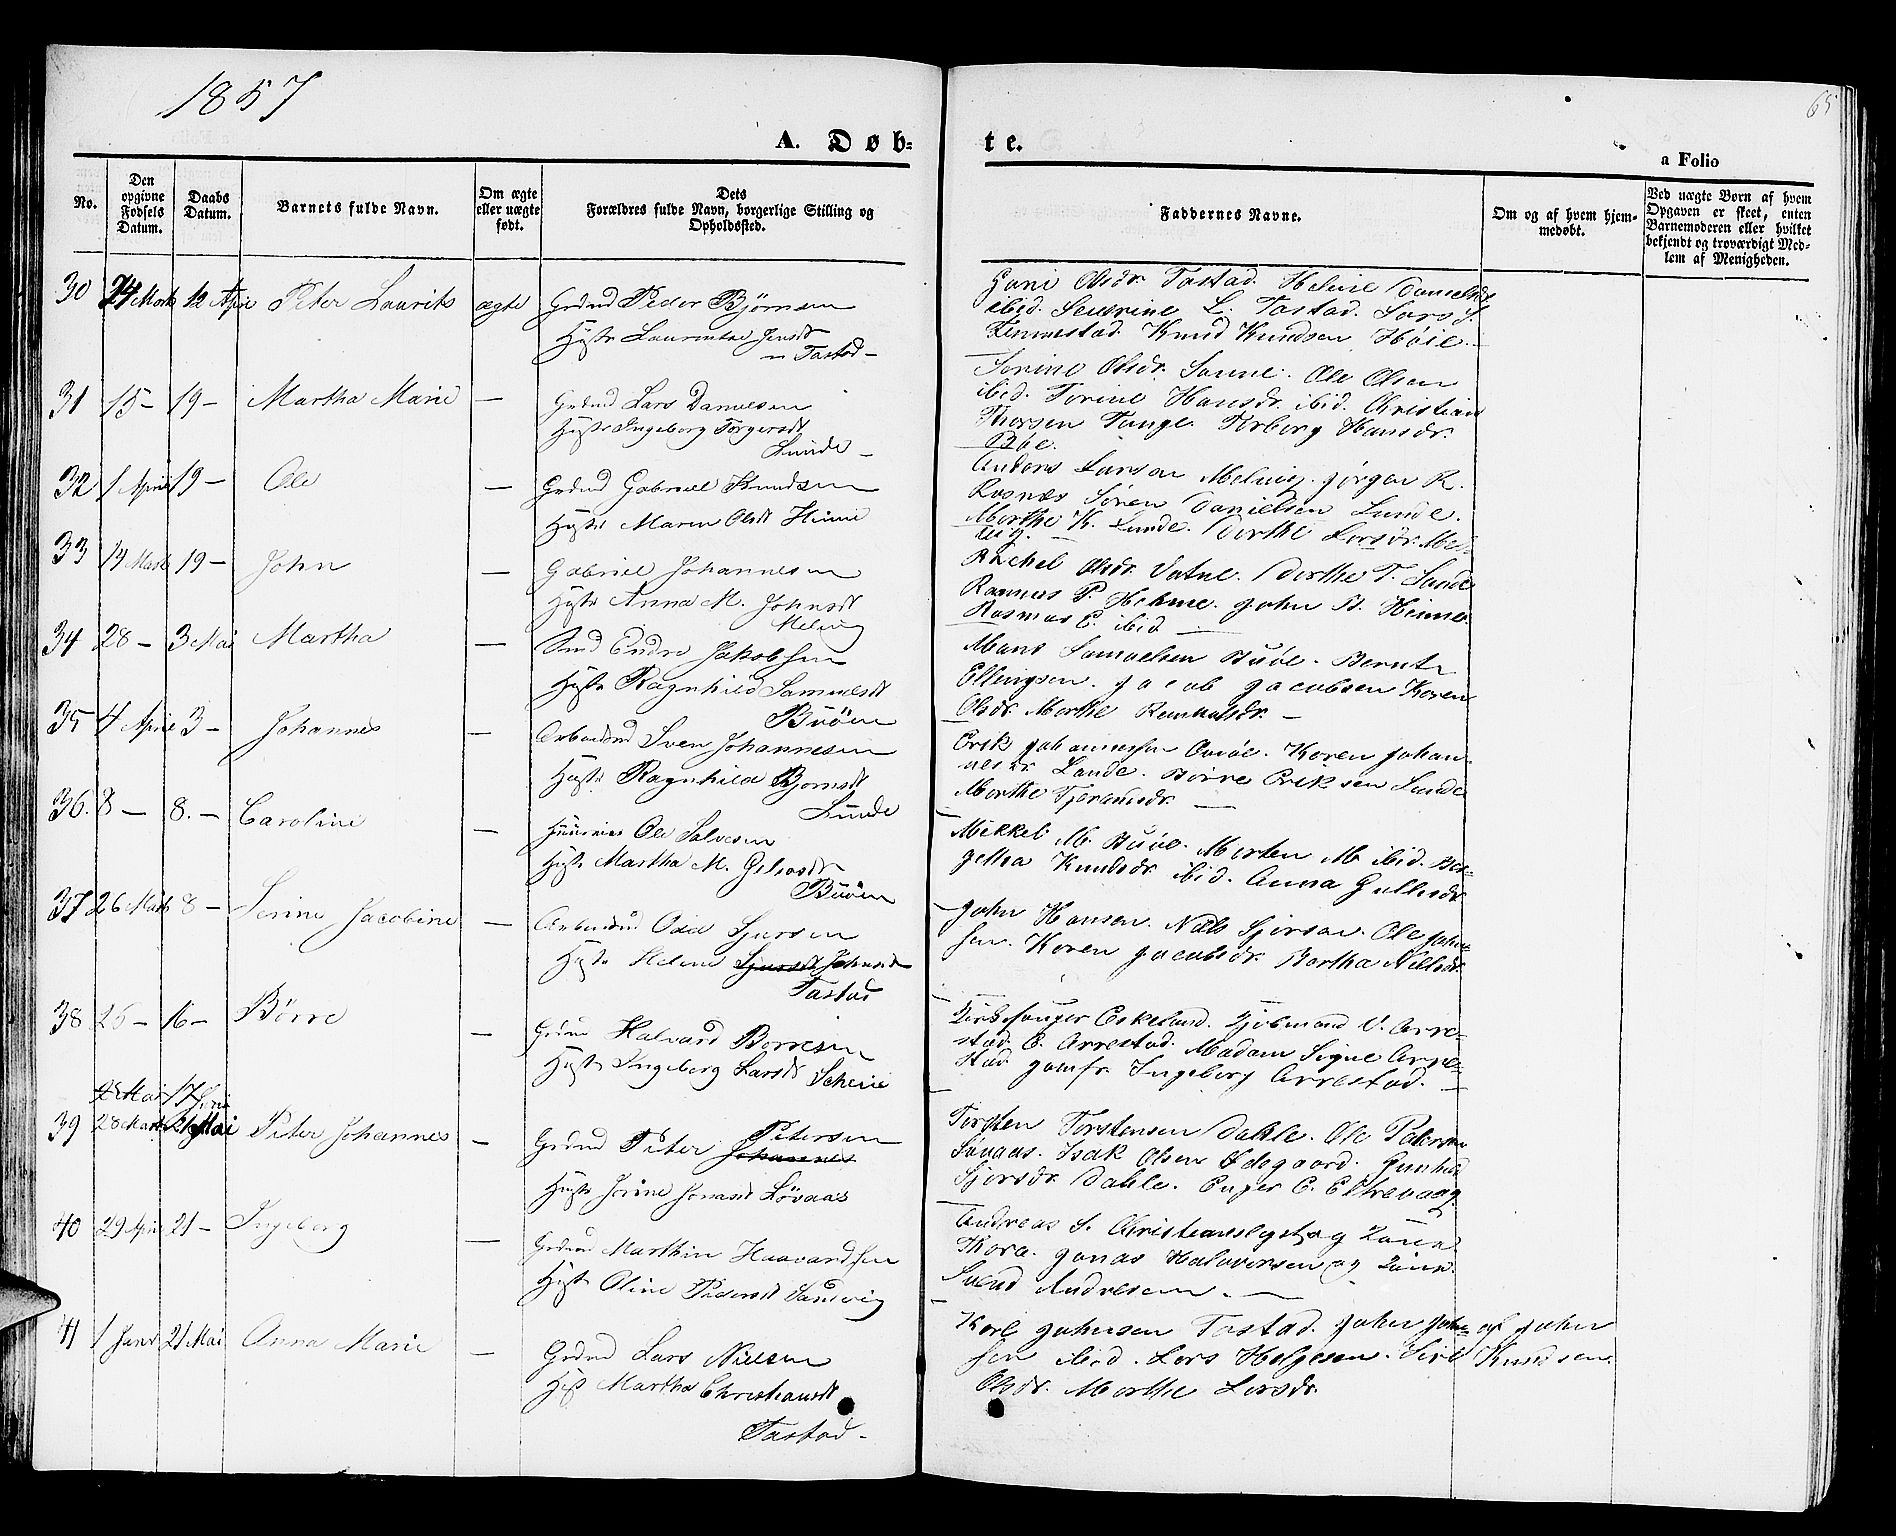 1857
65
A. Døb-
te.
a Folio
No.
Den opgivne Fødsels Datum.
Daabs Datum.
Barnets fulde Navn.
Om ægte eller uægte født.
Dets Forældres fulde Navn, borgerlige Stilling og Opholdssted.
Faddernes Navne.
Om og af hvem hjemmedøbt.
Ved uægte Børn af hvem Opgaven er skeet, enten Barnemoderen eller hvilket bekjendt og troværdigt Medlem af Menigheden.
30 24 Marts 12 April Peter Laurits ægte Grdmd Peder Bjørnsen
Hustr Laurentse Jensdt
Tastad
Olsdr. Tastad. Helene Danielsdr
ibid. Severine L. Tastad. Lars S.
Knud Knudsen Høie.
31 15 – 19 – Martha Marie – Grdmd Lars Danielsen
Hustr Ingeborg Torgersdt
Lunde –
Serine Olsdr. Sanne. Ole Olsen
ibid. Torine Hansdr. ibid. Christian
Thorsen Tange Torborg Hansdr.
Bøe.
32 1 April 19 – Ole – Grdmd Gabriel Knudsen
Hustr Maren Olsdt Hinne
Anders Larsen Melvig. Jørgen R.
Rosnæs Søren Danielsen Lunde.
Marthe K. Lunde. Dorthe Larsdr. Mel-
vig.
33 14 Marts 19 – John – Gabriel Johannesen
Hustr Anna M. Johnsdt
Melvig
Rachel Olsdr. Vatne. Dorthe T. Lunde
Rasmus P. Hehme. John B. Henne
Rasmus E. ibid –
34 28 – 3 Mai Martha – Smd Endre Jakobsen
Hustr Ragnhild Samuelsdt
Buøen
Mans Samuelsen Buøe. Bernt
Ellingsen. Jacob Jacobsen Karen
Olsdr. Marthe –
35 4 April 3 – Johannes – Arbeidsmd Sven Johannesen
Hustr Ragnhild Bjørnsdt
Lunde
Erik Johannessen Karen Johan-
nesdr. Lande. Børre Eriksen Lunde
Marthe –
36. 8 – 8. – Caroline – Huusmd Ole Salvesen
Hustr Martha M.
Buøen
Mikkel M. Buøe. Morten M. ibid. Ber-
getha Knudsdr. ibid. Anna
37 26 Marts 8 – Serine Jacobine – Arbeidsmd Odd Sjursen
Hustr Helene Sjursdt Johnsdt
Tastad
John Hansen. Niels Sjursen. Ole John-
sen. Karen Jacobsdr. Bertha Nielsdr.
38 26 – 16 – Børre – Grdmd Halvard Børresen
Hustr Ingeborg Larsdt Scheie
Kirkesanger Eskeland. Kjøbmand V. Arre-
stad. E. Arrestad. Madam Signe Arre-
stad Jomfr. Ingeborg Arrestad. –
4 Mai 17 Juni
39 28 Marts 21 Mai Peter Johannes – Grdmd Peter Johannes Petersen
Hustr Serine Jonasdt Løvaas
Torsten Torstensen Dahle. Ole Petersen
Løvaas. Isak Olsen Ødegaard. Gunhild
Sjursdr. Dahle. Enger E. Eltrevaag.
40 29 April 21 – Ingeborg – Grdmd Marthin Haavardsen
Hustr Oline Pedersdt Sandvig
Andreas S. Christianslyst og Kone
Thora. Jonas Halvorsen og Kone.
Svend Andresen. –
41 1 Janr 21 Mai Anna Marie – Grdmd Lars Nielsen
Hust Martha Christiansdt
Tastad –
Karl Johnsen Tastad. John John-
sen ibid. Lars Helgesen. Siri
Olsdr. Marthe Larsdr.
af John
Knudsen.